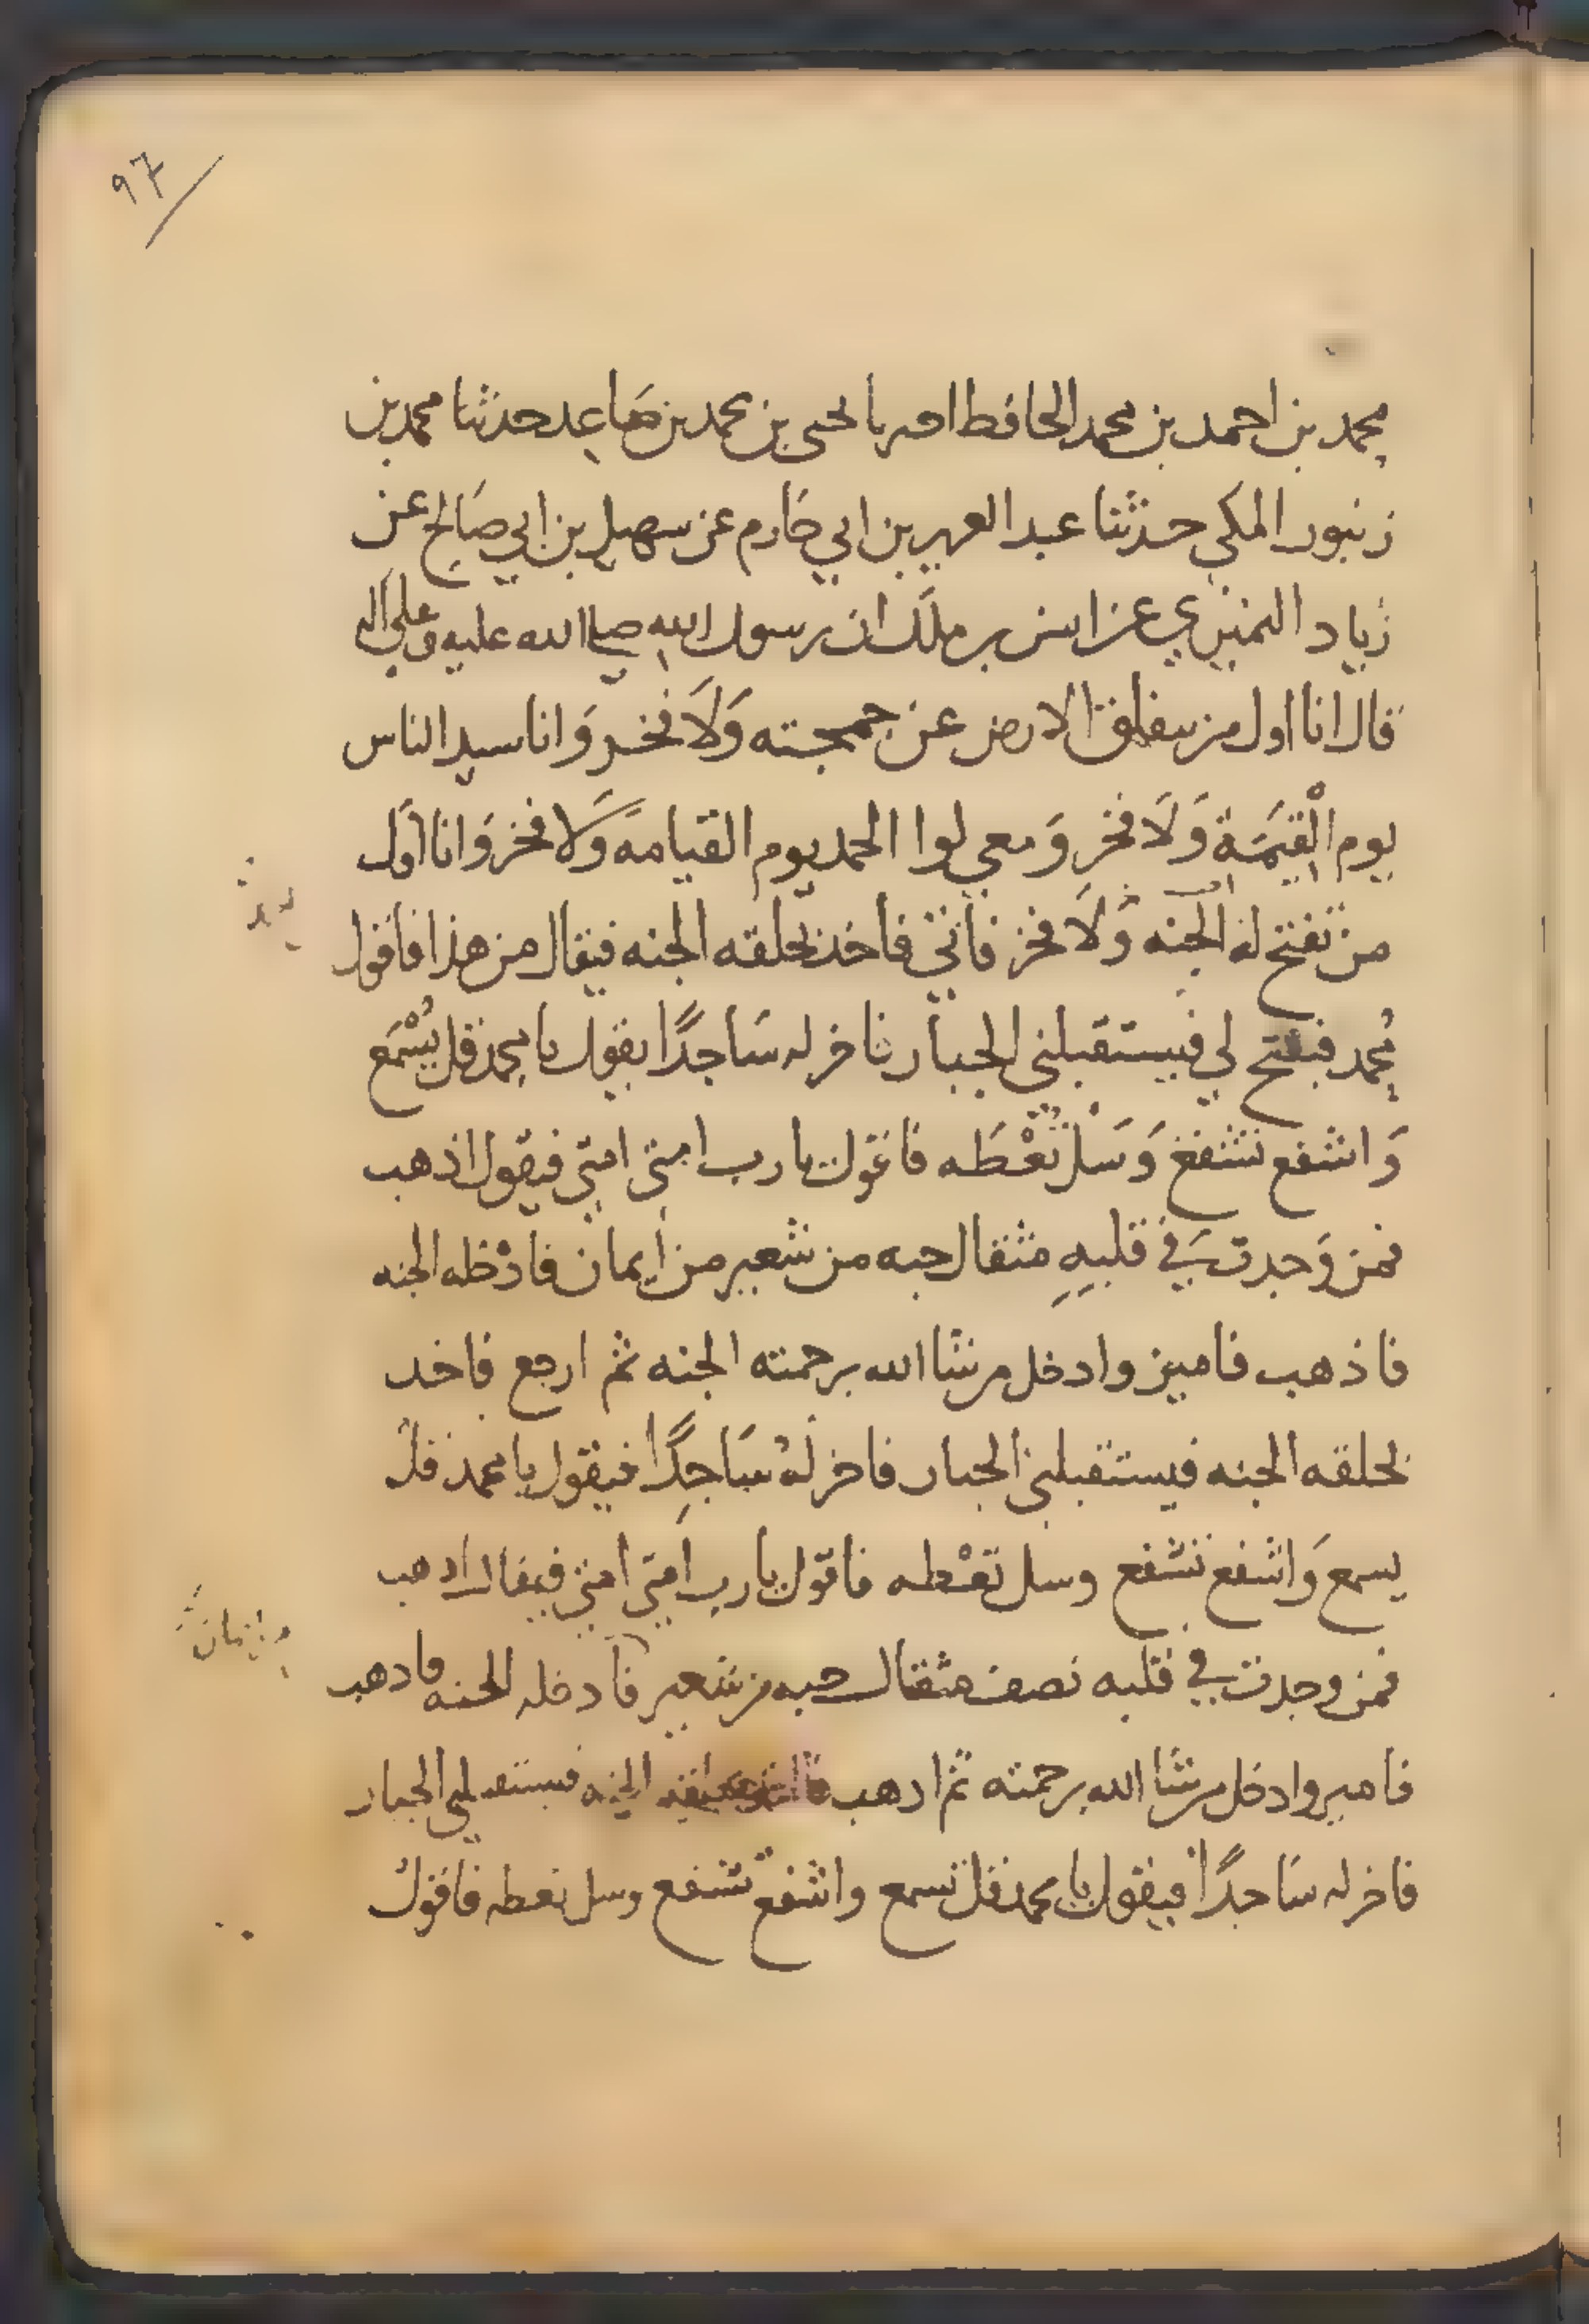 ٩٦
محمد بن احمد بن محمد الحافظ اخبرنا يحيى بن محمد بن صاعد حدثنا محمد بن
زنبور المكي حدثنا عبد العزيز بن ابي حازم عن سهيل بن ابي صالح عن
زياد النميري عن انس بن ملك ان رسول الله صلى الله عليه وعلى اله
قال انا اول من ينفلق الارض عن جمجمته وَلَا فخر وَانا سيد الناس
يوم الْقِيَمَةِ وَلَا فخر وَمعي لوا الحمد يوم القيامة وَلا فخر وَانا اول
من تفتح له الجنه وَلَا فخر فاتي فاخذ بحلقه الجنه فيقال من هذا فاقول
مُحمد فيفتح لي فيستقبلني الجبار فاخر له سَاجدًا يقول يا محمد قل يُسْمَع
وَاشفع تشفع وَسَل تُعْطَه فاقول يا رب امتي امتي فيقول اذهب
فمن وَجدت في قلبهِ مثقال حبه من شعير من ايمان فادْخله الجنه
فاذهب فاميز وادخل من شا الله برحمته الجنه ثم ارجع فاخذ
بحلقه الجنه فيستقبلني الجبار فاخر لهُ سَاجِدًا فيقول يا محمد قل
يسمع وَاشفع تشفع وسل تعْطه فاقول يا رب امتي امتي فيقال اذهب
فمن وجدت في قلبه نصف مثقال حبه من شعير فادخله الجنه فاذهب
فاميز وادخل من شا الله برحمته ثم اذهب الجنه فيستقبلني الجبار
فاخر له سَاجدًا فيقول يا محمد قل تسمع واشفع تشفع وسل تعطه فاقول